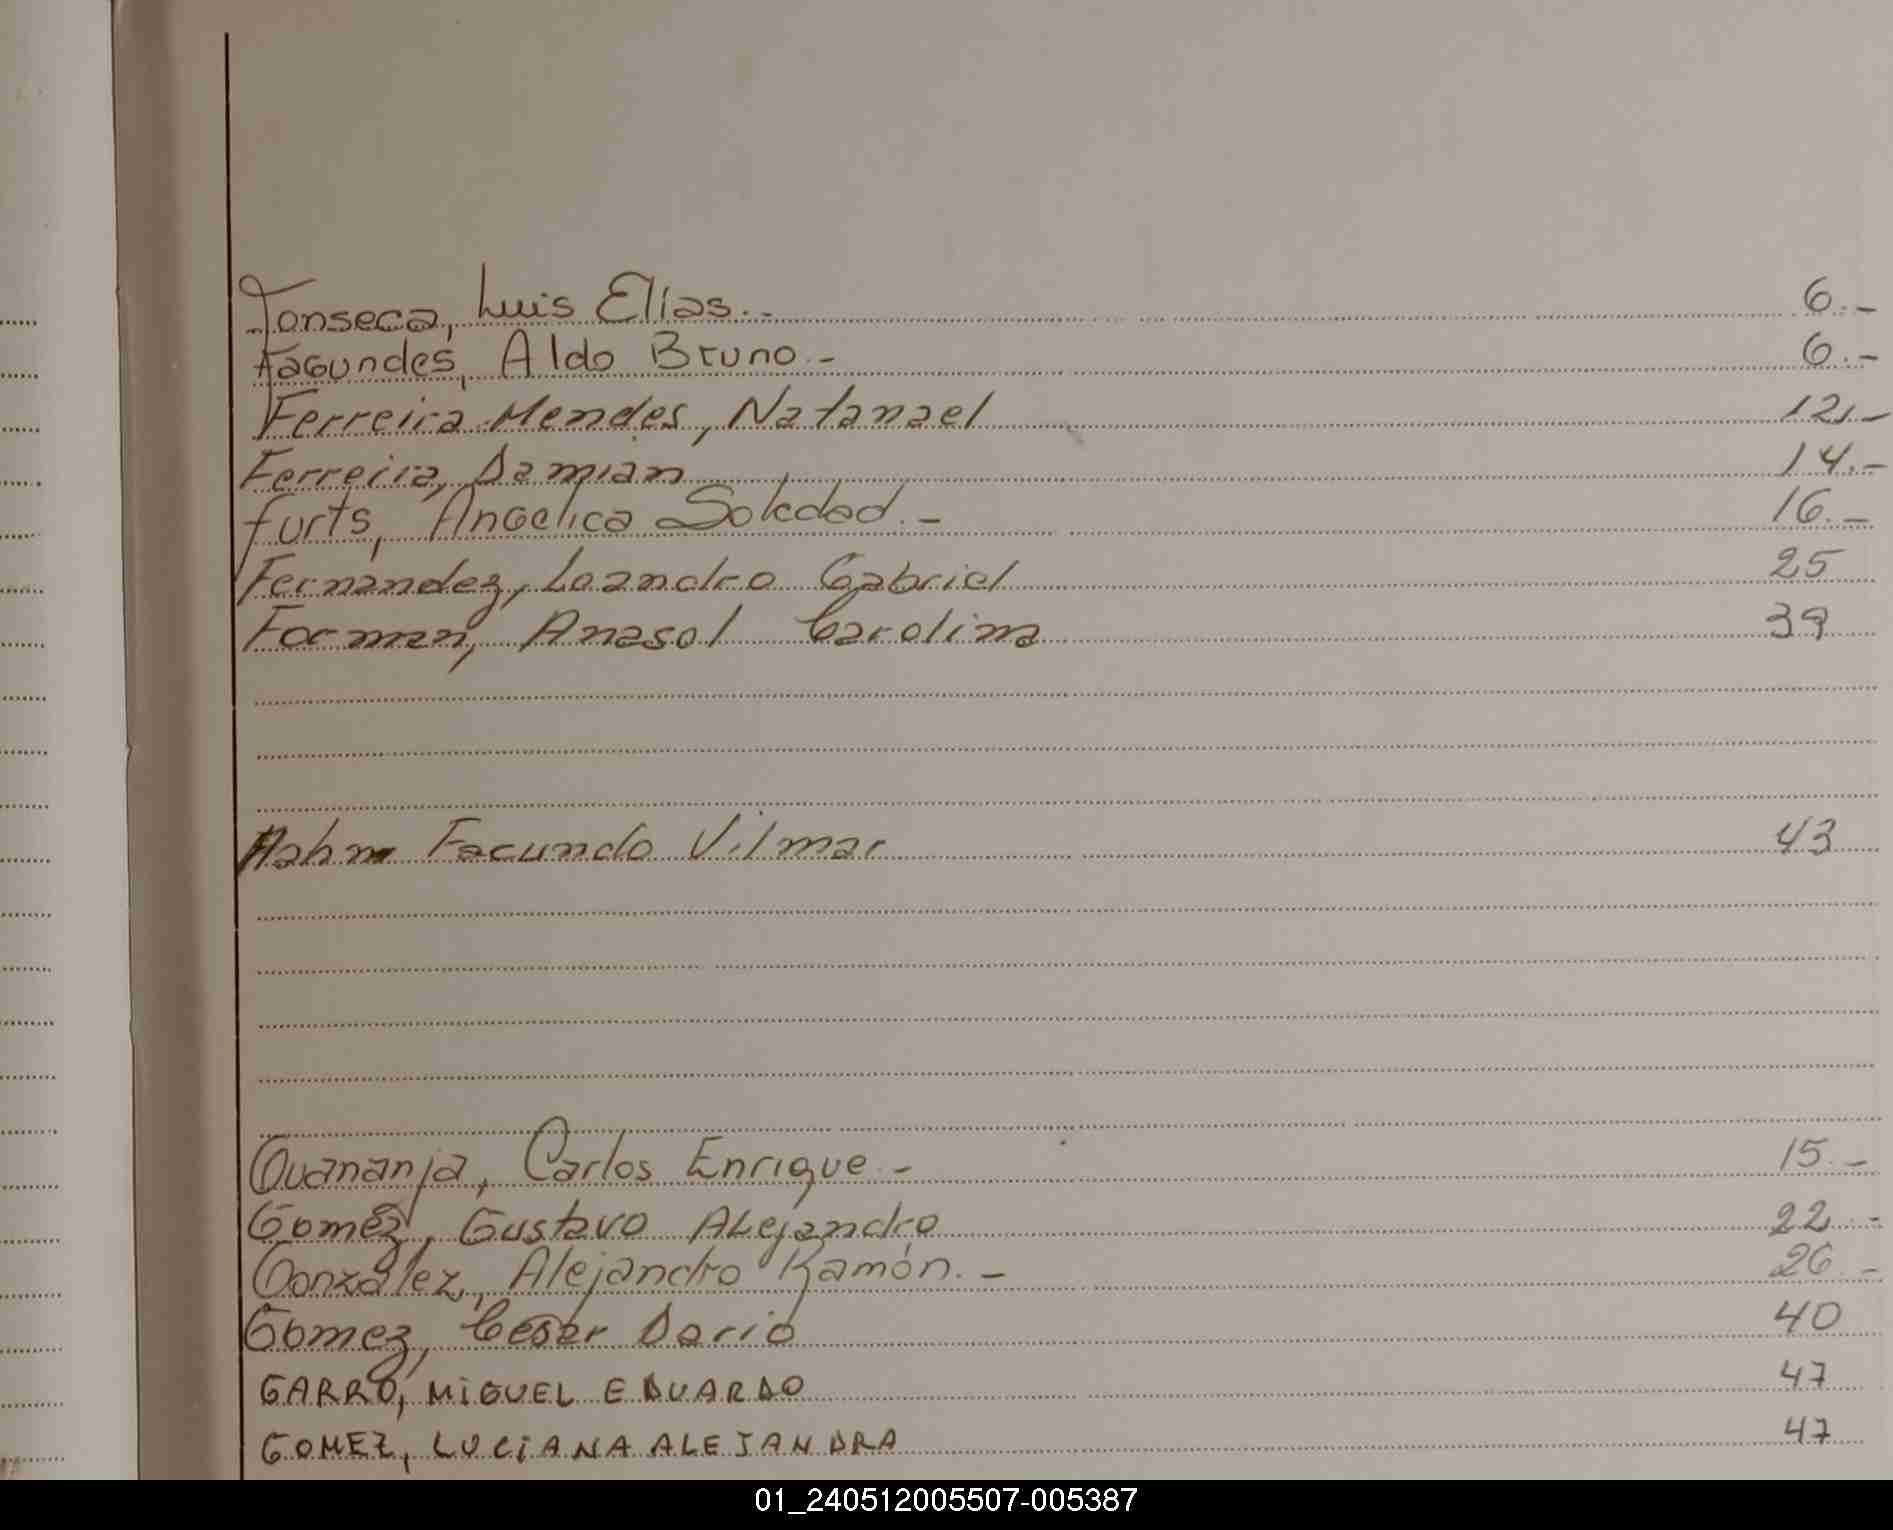 Fonseca, Luis Elías.- 6.-
Fagundes, Aldo Bruno.- 6.-
Ferreira Mendes, Natanael 12.-
Ferreira, Damian 14.-
Furts, Angelica Soledad.- 16.-
Fernandez, Leandro Gabriel 25
Forman, Anasol Carolina 39
Hahn Facundo Vilmar 43
Guananja, Carlos Enrique.- 15.-
Gomez, Gustavo Alejandro 22.-
González, Alejandro Ramón.- 26.-
Gomez, Cesar Dario 40
GARRO, MIGUEL EDUARDO 47
GOMEZ, LUCIANA ALEJANDRA 47
01_240512005507-005387